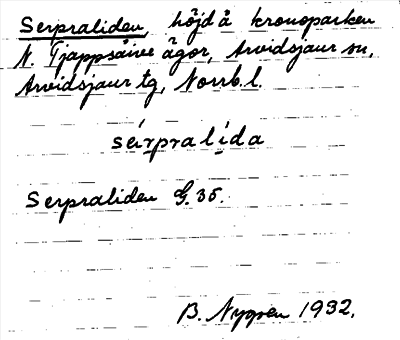 Serpraliden, höjd å kronoparken
N. Tjappsåive ägor, Arvidsjaur sn,
Arvidsjaur tg, Norrb. l.
sérpralída
Serpraliden G. 35.
B. Nygren 1932.